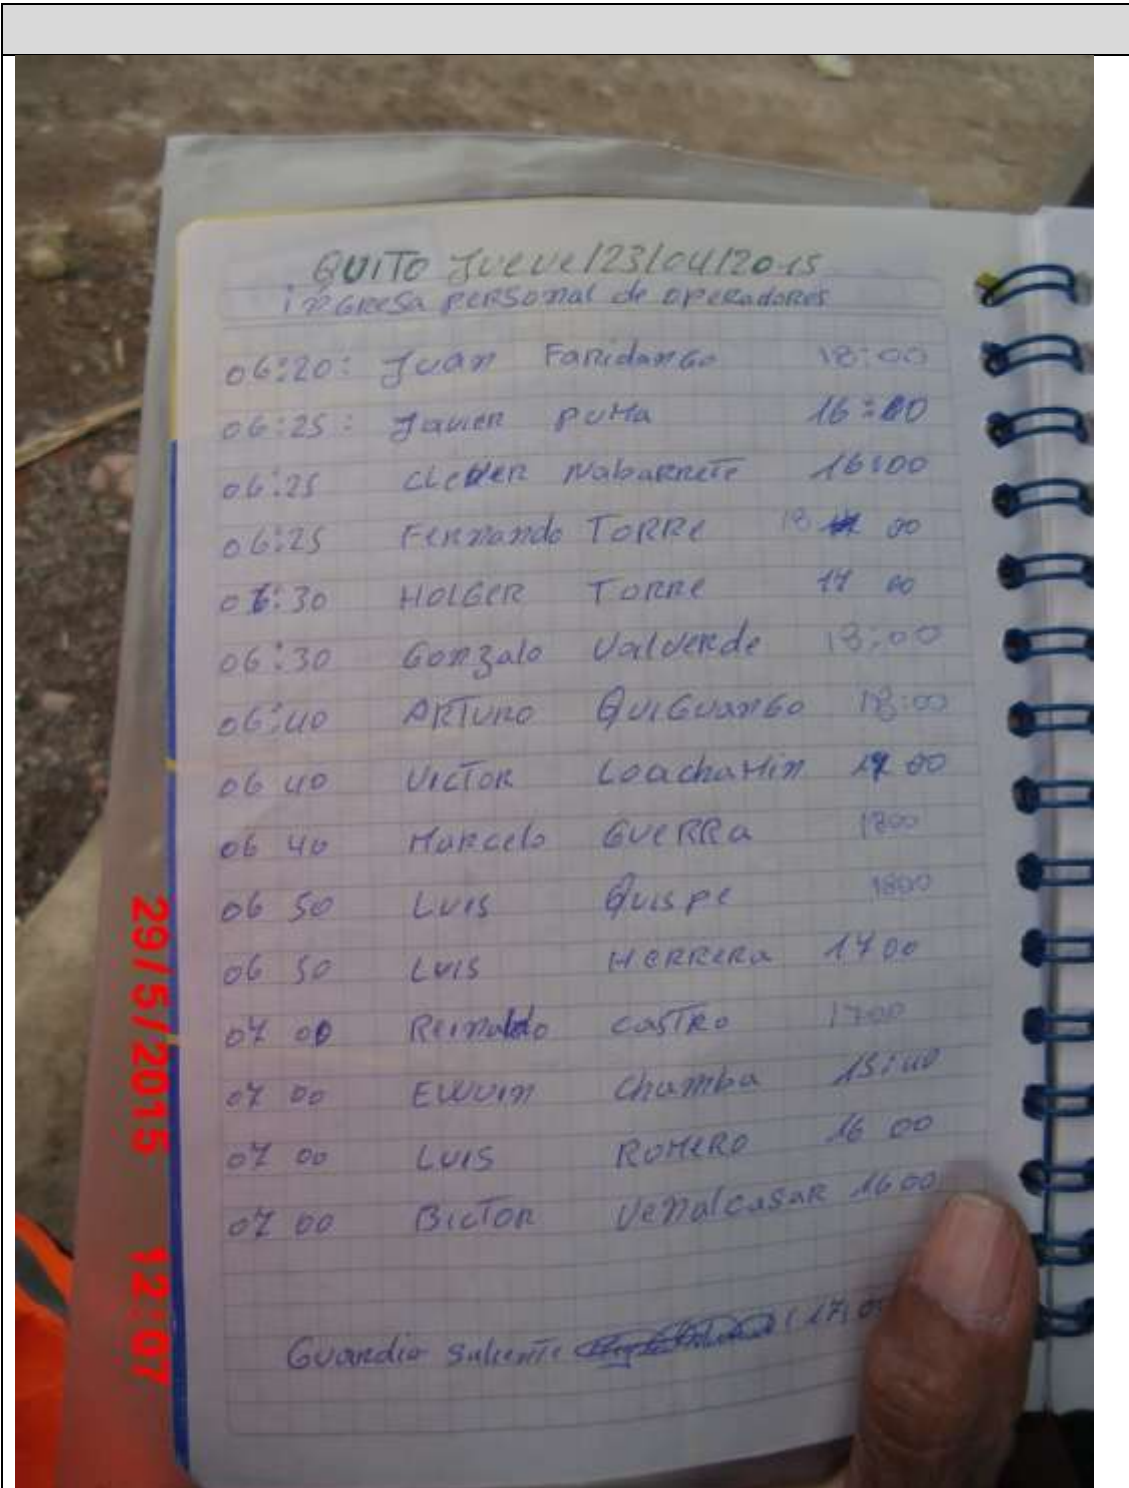 QUITO Jueve/23/04/2015
ingresa personal de operadores
06:20: Juan Faridango 18:00
06:25: Javier Puma 16:00
06:25 Cleber Nabarrete 16:00
06:25 Fernando Torre 18 00
06:30 Holger Torre 17 00
06:30 Gonzalo Valverde 18:00
06:40 Arturo Quiguango 18:00
06 40 Victor Loachamin 17 00
06 40 Marcelo Guerra 1800
06 50 Luis Quispe 1800
06 50 Luis Herrera 17 00
07 00 Reinaldo Castro 1700
07 00 Ewvin Chamba 15:40
07 00 Luis Romero 16 00
07 00 Bictor Venalcasar 16 00
Guardia saliente 17:0
29/5/2015 12:07